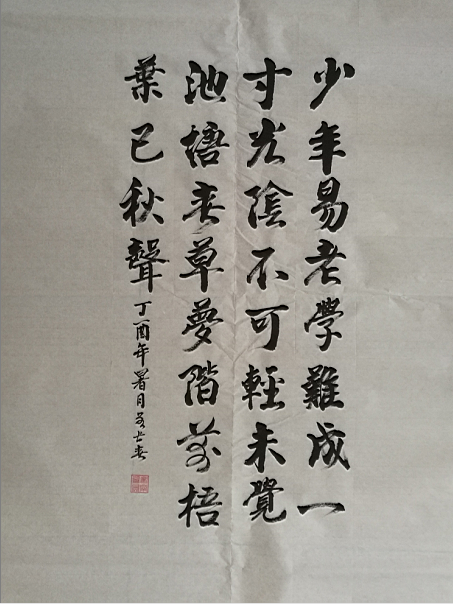 少年易老學難成一
寸光陰不可輕未覺
池塘春草夢階前梧
葉已秋聲
丁酉年暑月